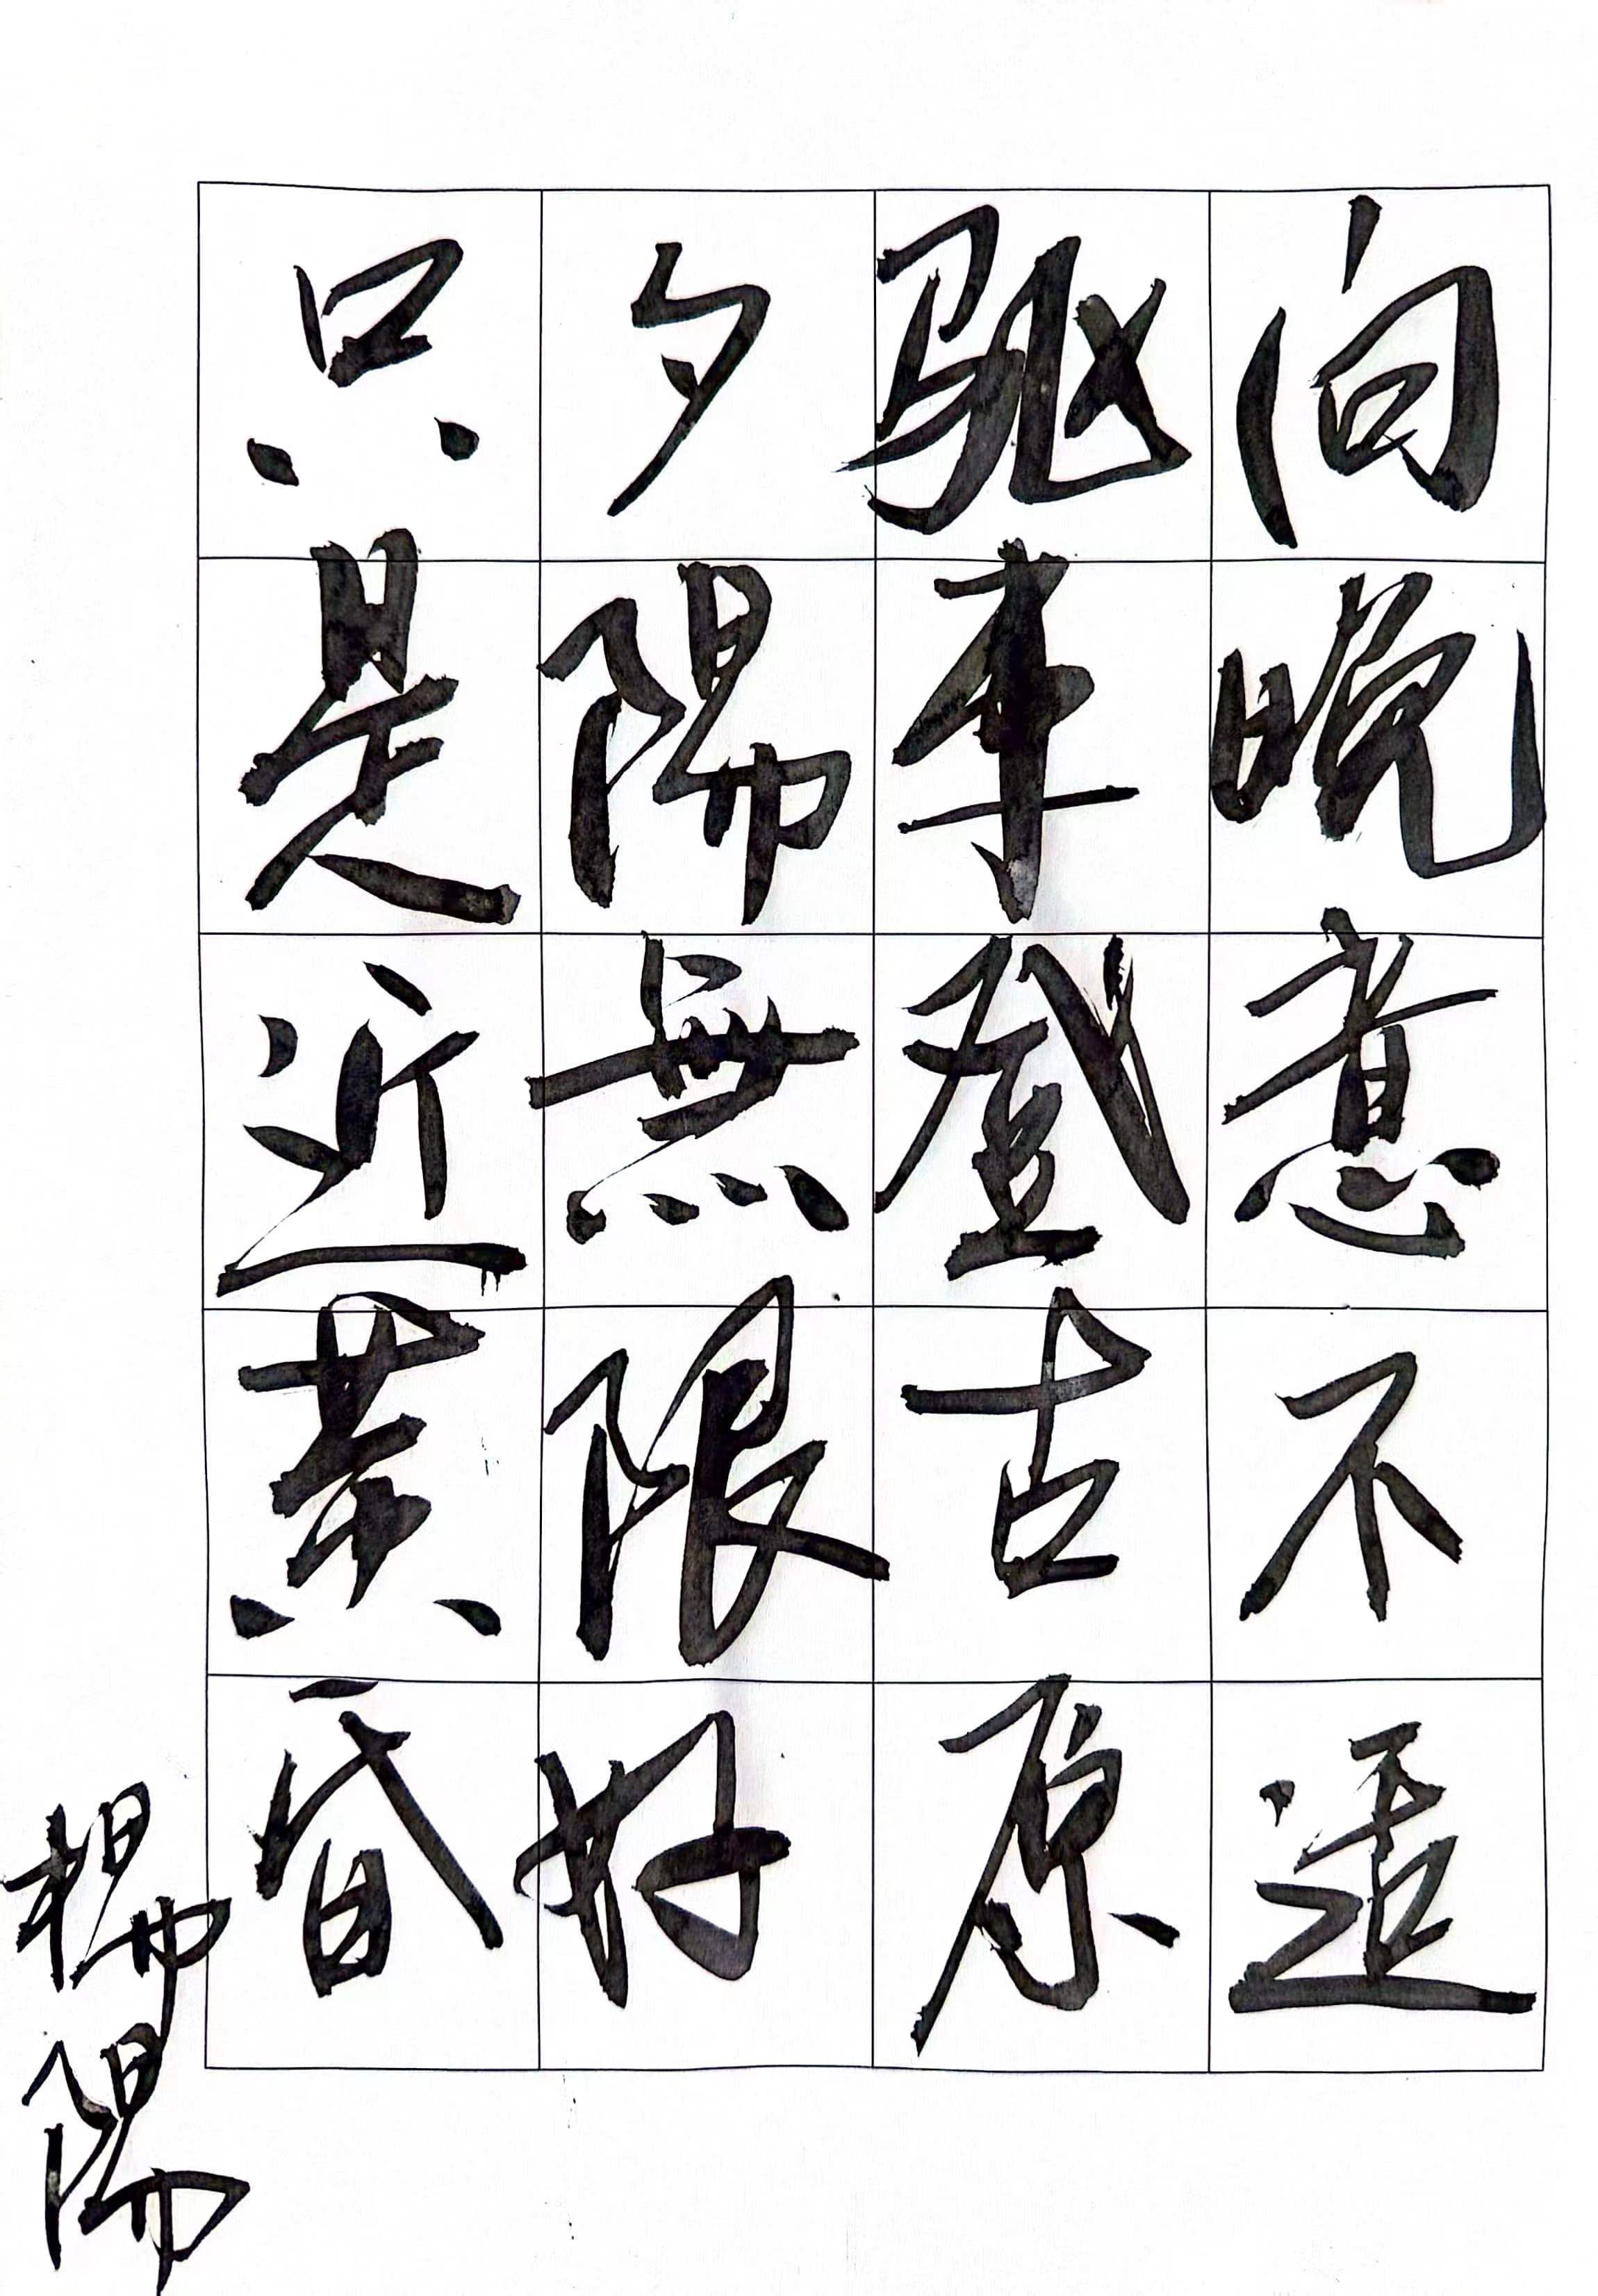 向晚意不适
驱车登古原
夕陽無限好
只是近黄昏
楊陽